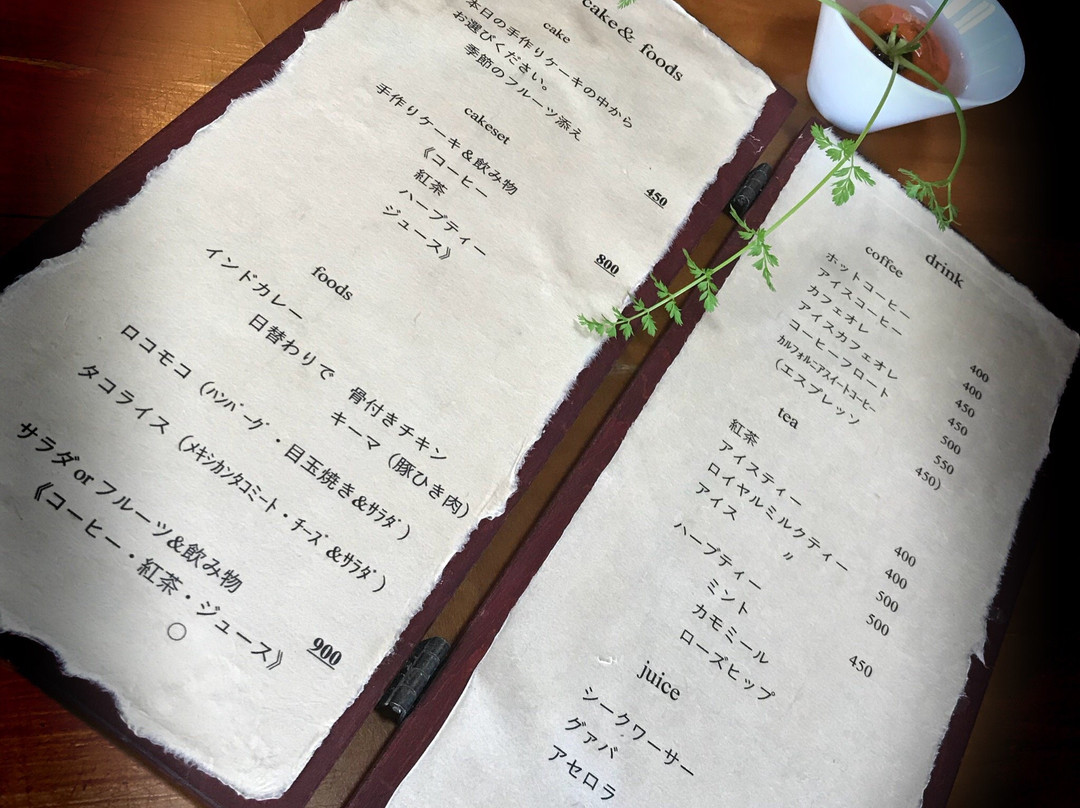 cake & foods
cake
本日の手作りケーキの中から
お選びください。
季節のフルーツ添え
450
cakeset
手作りケーキ&飲み物
《コーヒー
紅茶
ハーブティー
ジュース》
800
foods
インドカレー
日替わりで 骨付きチキン
キーマ（豚ひき肉）
ロコモコ（ﾊﾝﾊﾞｰｸﾞ・目玉焼き&ｻﾗﾀﾞ）
タコライス（ﾒｷｼｶﾝﾀｺﾐｰﾄ・ﾁｰｽﾞ&ｻﾗﾀﾞ）
サラダ or フルーツ&飲み物
《コーヒー・紅茶・ジュース》
900
○
drink
coffee
ホットコーヒー 400
アイスコーヒー 400
カフェオレ 450
アイスカフェオレ 450
コーヒーフロート 500
ｶﾙﾌｫﾙﾆｱｽｲｰﾄｺｰﾋｰ 550
（エスプレッソ 450）
tea
紅茶 400
アイスティー 400
ロイヤルミルクティー 500
アイス 〃 500
ハーブティー 450
ミント
カモミール
ローズヒップ
juice
シークワーサー
グァバ
アセロラ